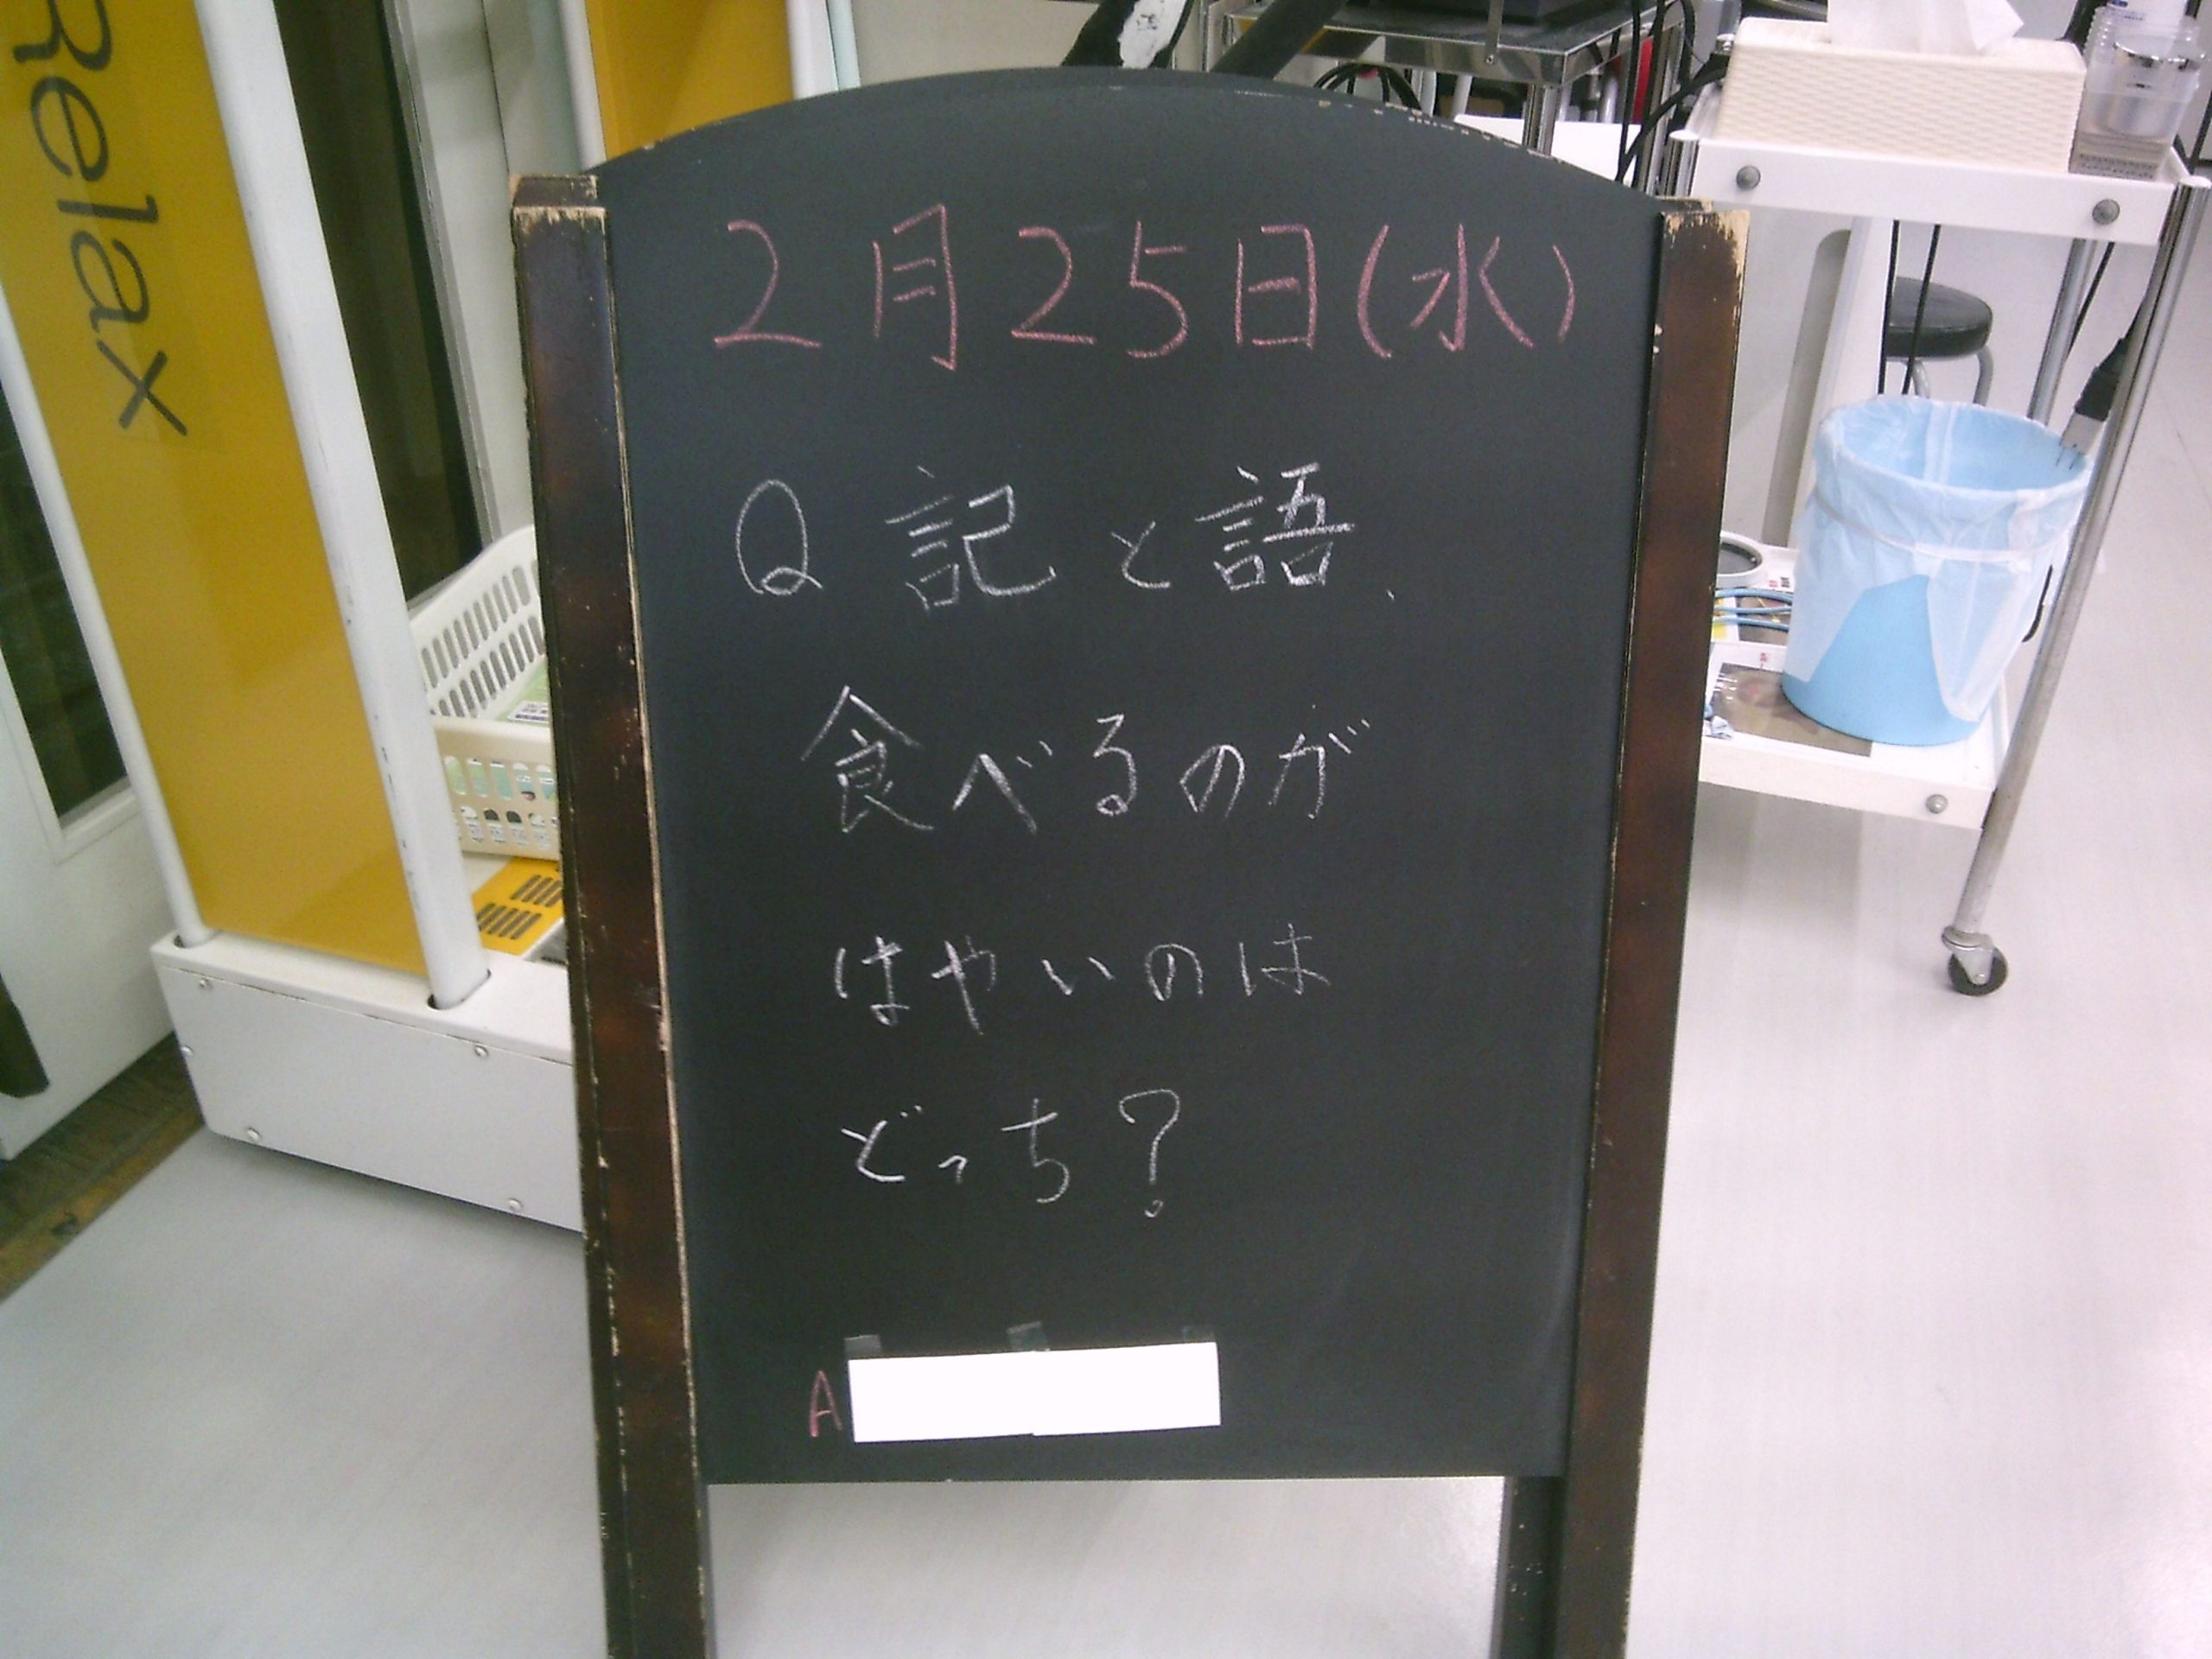 Relax
2月25日(水)
Q 記と語、
食べるのが
はやいのは
どっち?
A